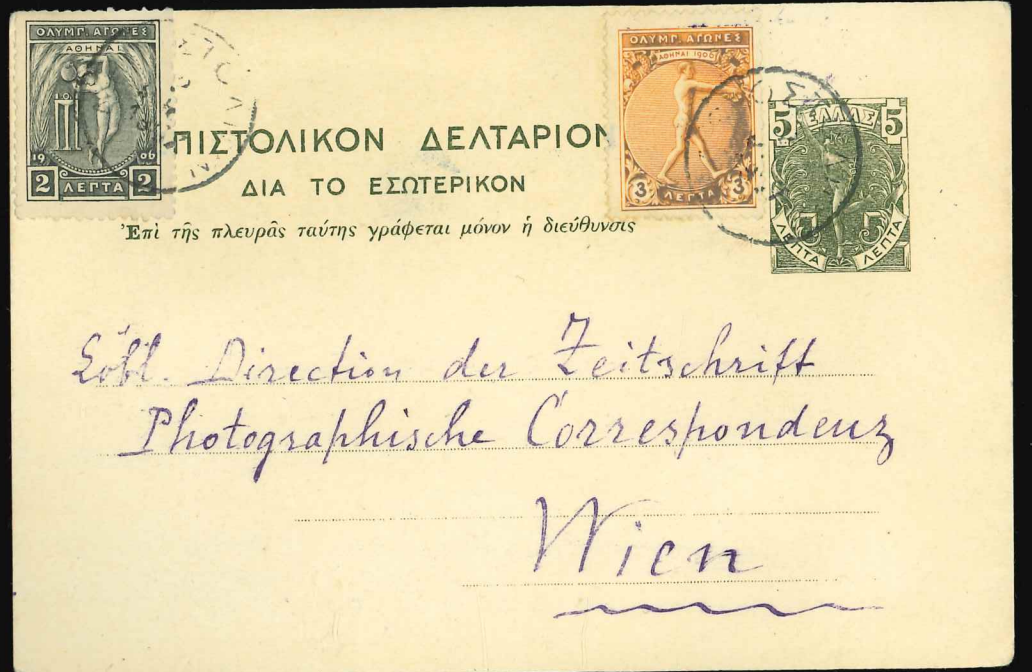 ΟΛΥΜΠ. ΑΓΩΝΕΣ
ΑΘΗΝΑΙ
1906
2 ΛΕΠΤΑ 2
ΟΛΥΜΠ. ΑΓΩΝΕΣ
ΑΘΗΝΑΙ 1906
3 ΛΕΠΤΑ 3
5 ΕΛΛΑΣ 5
5 5
ΛΕΠΤΑ ΛΕΠΤΑ
ΠΙΣΤΟΛΙΚΟΝ ΔΕΛΤΑΡΙΟΝ
ΔΙΑ ΤΟ ΕΣΩΤΕΡΙΚΟΝ
Ἐπὶ τῆς πλευρᾶς ταύτης γράφεται μόνον ἡ διεύθυνσις
Löbl. Direction der Zeitschrift
Photographische Correspondenz
Wien